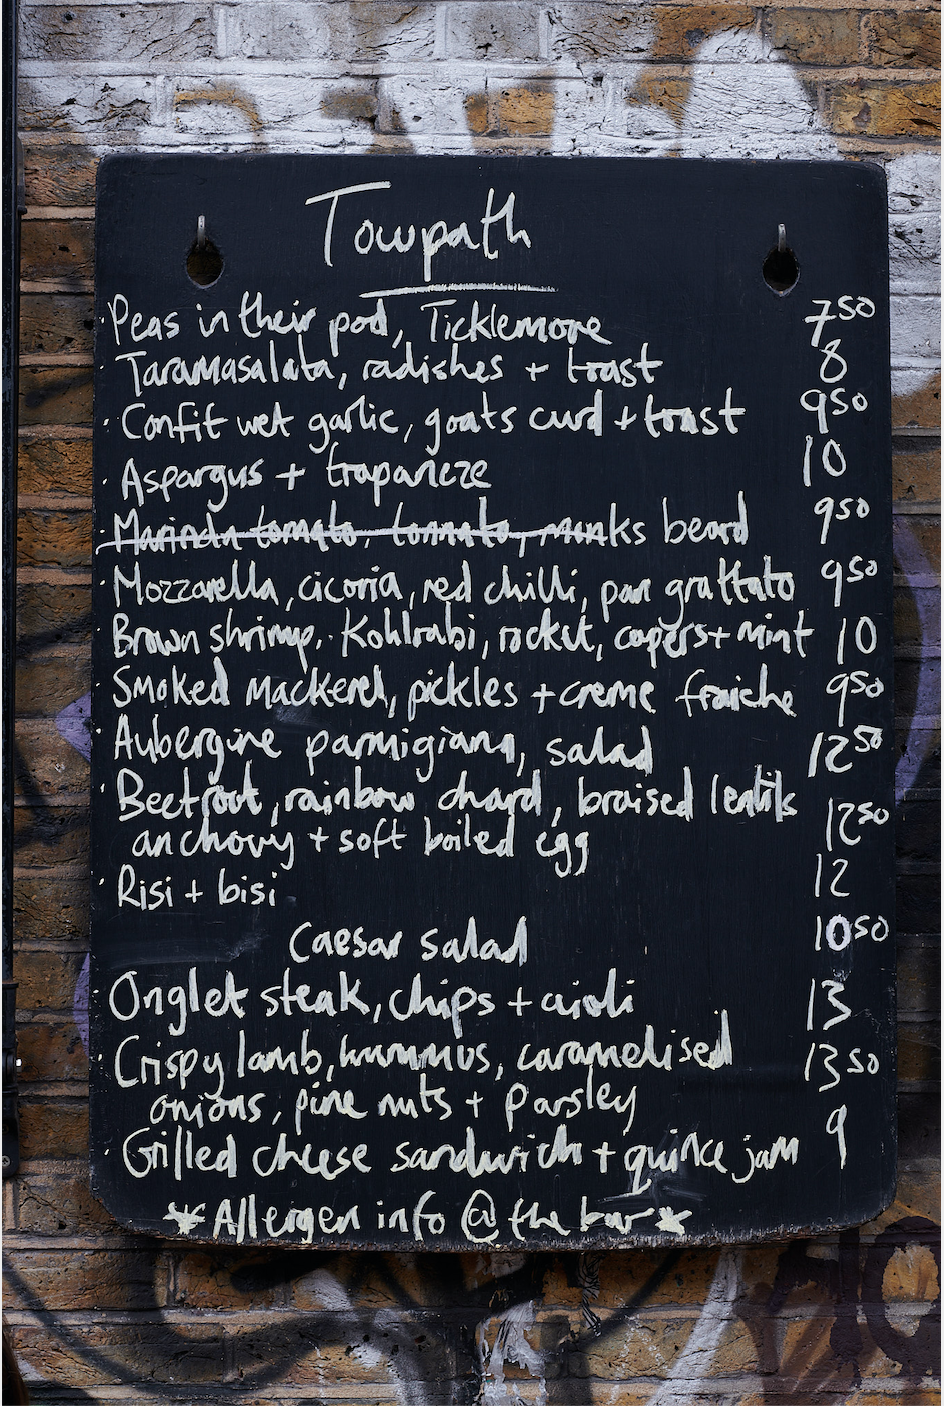 Towpath
· Peas in their pod, Ticklemore 7 50
· Taramasalata, radishes + toast 8
· Confit wet garlic, goats curd + toast 9 50
· Aspargus + trapaneze 10
· Marinda tomato, tonnato, monks beard 9 50
· Mozzarella, cicoria, red chilli, pan grattato 9 50
· Brown shrimp, Kohlrabi, rocket, capers + mint 10
· Smoked mackerel, pickles + creme fraiche 9 50
· Aubergine parmigiana, salad 12 50
· Beetroot, rainbow chard, braised lentils
anchovy + soft boiled egg 12 50
· Risi + bisi 12
Caesar salad 10 50
· Onglet steak, chips + aioli 13
· Crispy lamb, hummus, caramelised 13 50
onions, pine nuts + parsley
· Grilled cheese sandwich + quince jam 9
*Allergen info @ the bar*